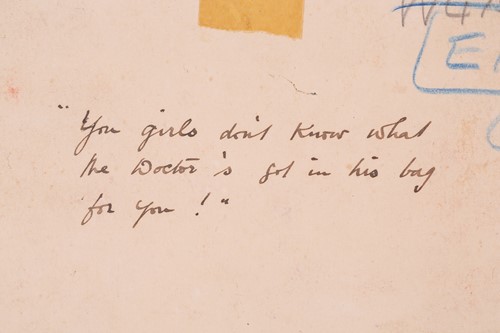 "You girls don't know what
the Doctor's got in his bag
for you!"